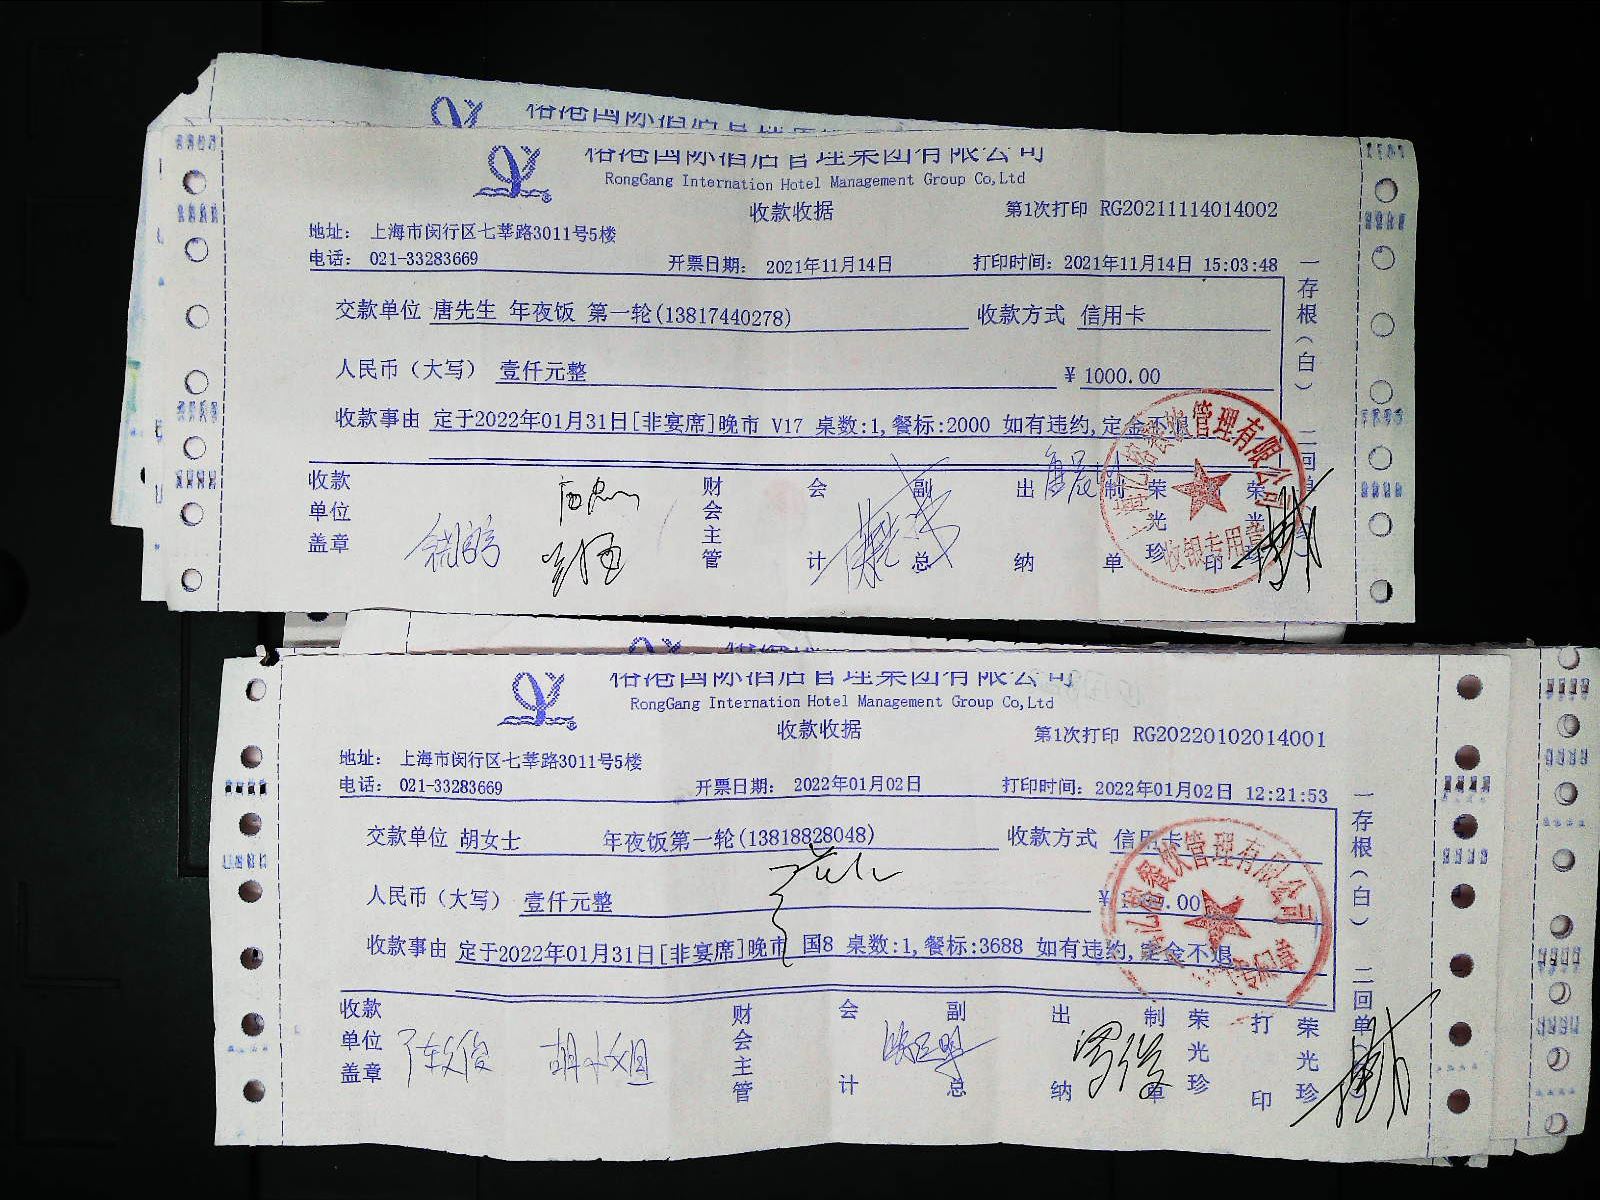 国际酒店管理集团有限公司
RongGang Internation Hotel Management Group Co,Ltd
收款收据
第1次打印 RG20211114014002
地址： 上海市闵行区七莘路3011号5楼
电话： 021-33283669
开票日期： 2021年11月14日
打印时间：2021年11月14日 15:03:48
交款单位 唐先生 年夜饭 第一轮(13817440278)
收款方式 信用卡
人民币（大写） 壹仟元整
¥ 1000.00
收款事由 定于2022年01月31日[非宴席]晚市 V17 桌数:1,餐标:2000 如有违约,定金不退
收款单位盖章
财会主管
会计
副总
出纳
制单
荣光珍
印
荣光珍
一存根（白）
二回单
管理有限公司
收银专用章
国际酒店管理集团有限公司
RongGang Internation Hotel Management Group Co,Ltd
收款收据
第1次打印 RG20220102014001
地址： 上海市闵行区七莘路3011号5楼
电话： 021-33283669
开票日期： 2022年01月02日
打印时间：2022年01月02日 12:21:53
交款单位 胡女士 年夜饭第一轮(13818828048)
收款方式 信用卡
人民币（大写） 壹仟元整
¥ .00
收款事由 定于2022年01月31日[非宴席]晚市 国8 桌数:1,餐标:3688 如有违约,定金不退
收款单位盖章
财会主管
会计
副总
出纳
制单
荣光珍
打印
荣光珍
一存根（白）
二回单
管理有限公司